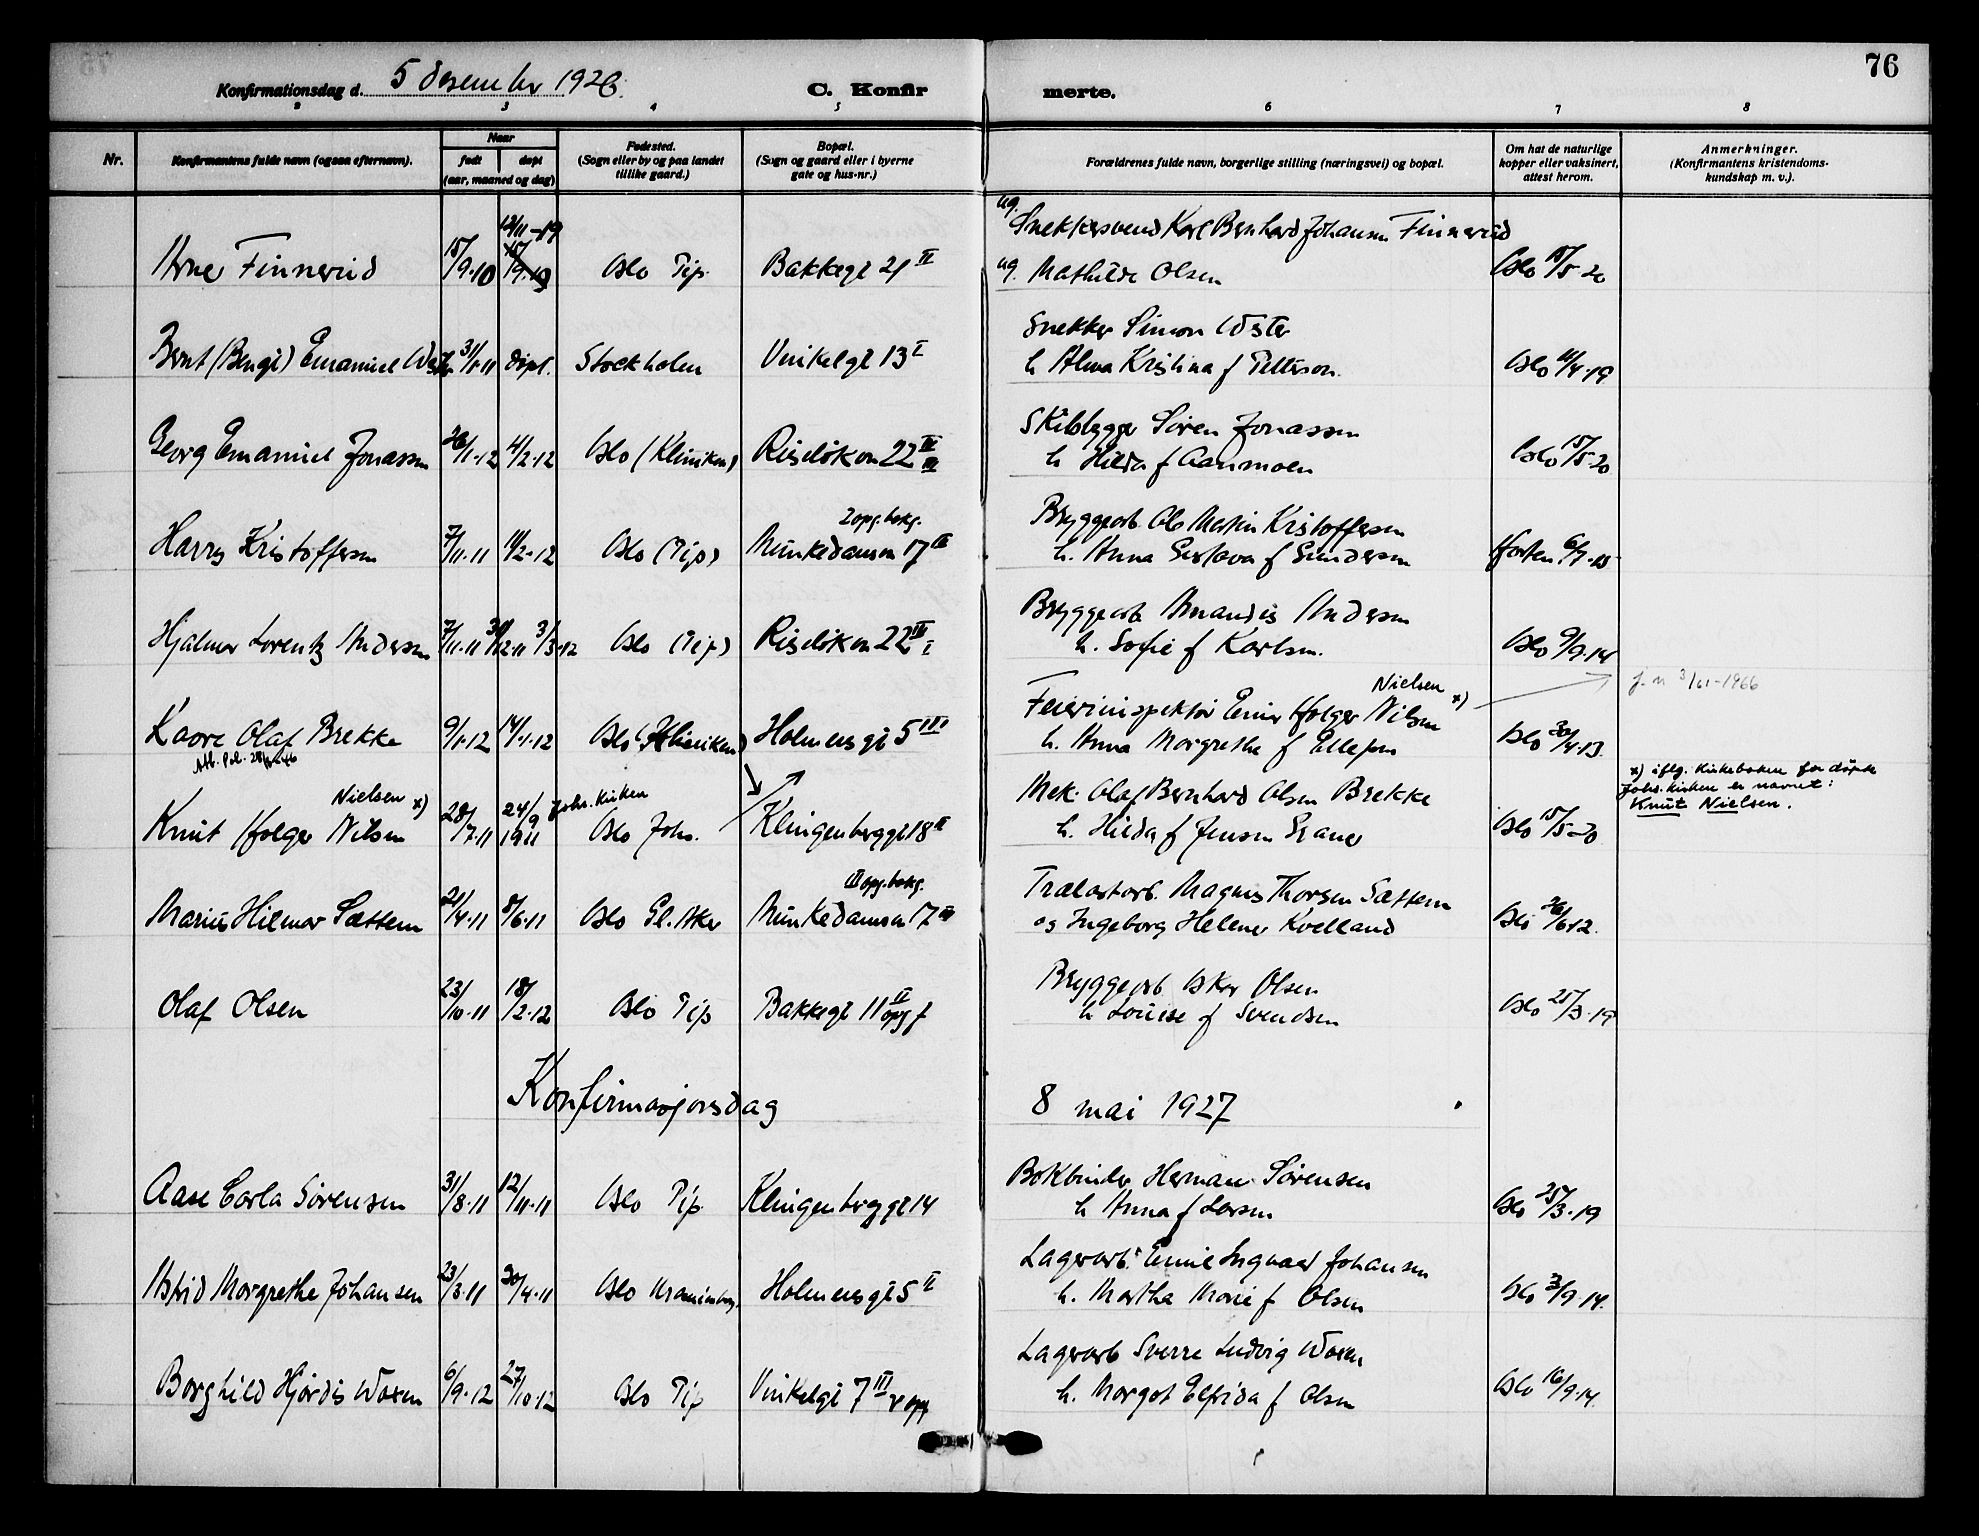 76
Konfirmationsdag d. 5 desember 1926.
C. Konfir merte.
2 3 4 5 6 7 8
Nr.
Konfirmantens fulde navn (ogsaa efternavn).
Naar
født døpt
(aar, maaned og dag)
Fødested.
(Sogn eller by og paa landet
tillike gaard.)
Bopæl.
(Sogn og gaard eller i byerne
gate og hus-nr.)
Forældrenes fulde navn, borgerlige stilling (næringsvei) og bopæl.
Om hat de naturlige
kopper eller vaksinert,
attest herom.
Anmerkninger.
(Konfirmantens kristendoms-
kundskap m. v.).
ug. Snekkersvend Karl Bernhard Johansen Finnerud
Arne Finnerud 15/9.10 Oslo Pip. Bakkegt 21 II ug. Mathilde Olsen Oslo 15/5-20
Snekker Simon Wester
Bernt (Bengt) Emanuel Wester 31/1.11 døpt. Stockholm Vinkelgt 13 I h Alma Kristina f Petterson. Oslo 11/4.19
Skibbygge Søren Jonassen
Georg Emanuel Jonassen 26/1-12 4/2.12 Oslo (Kliniken) Riseløkvn 22 III h Hilda f Aanmoen Oslo 15/5-20
2 opg. bakg. Bryggearb. Ole Martin Kristoffersen
Harry Kristoffersen 7/11.11 11/2-12 Oslo (Pip) Munkedamsvn 17 III h. Anna Gustava f Gundersen Horten 6/7.15
Bryggearb Amandus Andersen
Hjalmar Lorentz Andersen 7/11.11 3/3.12 Oslo (Pip) Riseløkvn 22 III I h. Sofie f Karlsen. Oslo 9/9.14
Nielsen x)
Feierinspektør Einar Holger Nilsen
j. n 3/61-1966
Kaare Olaf Brekke 9/1.12 14/1.12 Oslo (Kliniken) Holmensgt 5 III h. Anna Margrethe f Ellefsen Oslo 30/4.13.
x) iflg. Kirkeboken for døpte
Johs. kirken er navnet:
Knut Nielsen.
Nielsen x) 24/9 Johs. kirken Mek. Olaf Bernhard Olsen Brekke
Knut Holger Nilsen 28/7.11 1911 Oslo Johs. Klingenberggt 18 II h. Hilda f Jensen Graner Oslo 15/5-20
III opg. bakg. Trælastarb. Magnus Thorsen Sættem
Marius Hilmar Sættem 21/4.11 8/6.11 Oslo Gl. Aker Munkedamsvn 17 III og Ingeborg Helene Kvelland Oslo 26/6 12.
Bryggearb Oskar Olsen
Olaf Olsen 23/10.11 18/2.12 Oslo Pip Bakkegt 11 II opg f h Louise f Svendsen Oslo 25/3.19
Konfirmasjonsdag 8 mai 1927
Bokbinder Herman Sørensen
Aase Carla Sørensen 31/8.11 12/11.11 Oslo Pip Klingenberggt 14 h Anna f Larsen Oslo 25/3.19
Lagerarb. Emil Ingvald Johansen
Astrid Margrethe Johansen 23/3.11 30/4.11 Oslo Uranienborg Holmensgt 5 II h. Martha Marie f Olsen Oslo 3/9.14.
Lagerarb Sverre Ludvig Waxen
Borghild Hjørdis Waxen 6/9.12 27/10.12 Oslo Pip Vinkelgt 7 III v opg h. Margot Elfrida f Olsen Oslo 16/9.14.